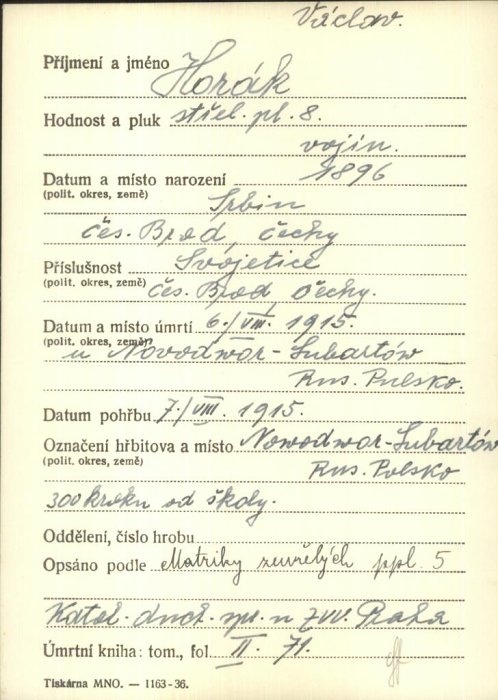 Václav.
Příjmení a jméno Horák
Hodnost a pluk střel. pl. 8.
vojín.
Datum a místo narození 1896
(polit. okres, země) Srbin
čes. Brod, čechy
Příslušnost Svojetice
(polit. okres, země) čes. Brod, Čechy.
Datum a místo úmrtí 6./VIII. 1915.
(polit. okres, země) u Novodwor-Lubartów
Rus. Pulsko.
Datum pohřbu 7./VIII. 1915.
Označení hřbitova a místo Nowodwor-Lubartów
(polit. okres, země) Rus. Polsko
300 kroku od školy.
Oddělení, číslo hrobu
Opsáno podle Matriky zemřelých ppl. 5
Katol. duch. spr. u ZVV. Praha
Úmrtní kniha: tom., fol. II. 71.
Tiskárna MNO. — 1163-36.